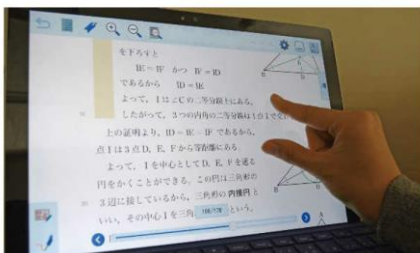 を下ろすと
IE＝IF かつ IF＝ID
であるから ID＝IE
よって，Iは∠Cの二等分線上にある。
したがって，3つの内角の二等分線は1点で交
上の証明より，ID＝IE＝IFであるから，
点Iは3点D，E，Fから等距離にある
よって，Iを中心としてD，E，Fを通る
円をかくことができる。この円は三角形の
3辺に接しているから，三角形の内接円と
いい，その中心Iを三角
という。